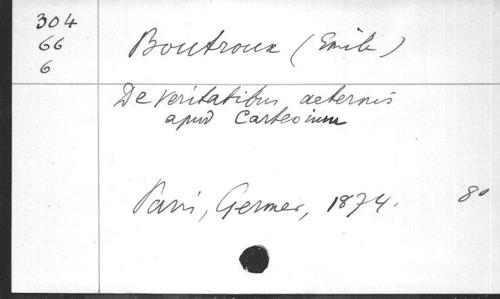 304
66
6
Boutroux (Emile)
De veritatibus aeternis
apud Cartesium
Paris, Germer, 1874. 8º